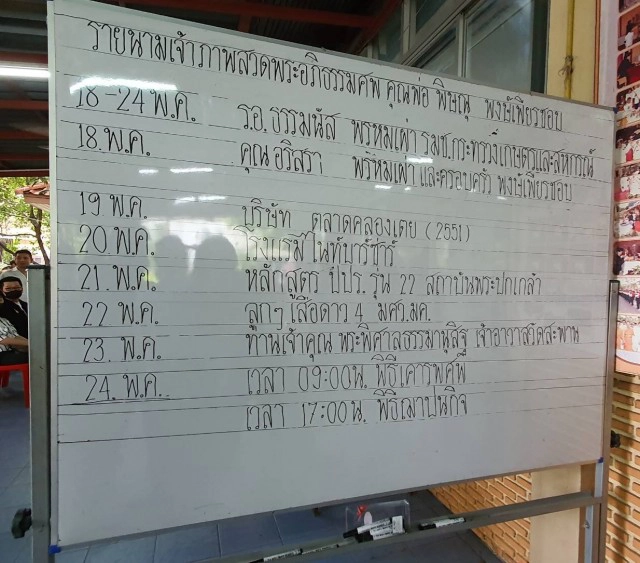 รายนามเจ้าภาพสวดพระอภิธรรมศพ คุณพ่อ พิษณุ พงษ์เพียรชอบ
18-24 พ.ค. ร.อ. ธรรมนัส พรหมเผ่า รมช.กระทรวงเกษตรและสหกรณ์
18. พ.ค. คุณ อริสรา พรหมเผ่า และครอบครัว พงษ์เพียรชอบ
19 พ.ค. บริษัท ตลาดคลองเตย (2551)
20 พ.ค. โรงแรมไนท์บาร์ซาร์
21. พ.ค. หลักสูตร ปปร. รุ่น 22 สถาบันพระปกเกล้า
22 พ.ค. ลูกๆ เสือดาว 4 มศว.มค.
23. พ.ค. ท่านเจ้าคุณ พระพิศาลธรรมานุสิฐ เจ้าอาวาสวัดสะพาน
24. พ.ค. เวลา 09:00น. พิธีเคารพศพ
เวลา 17:00น. พิธีฌาปนกิจ